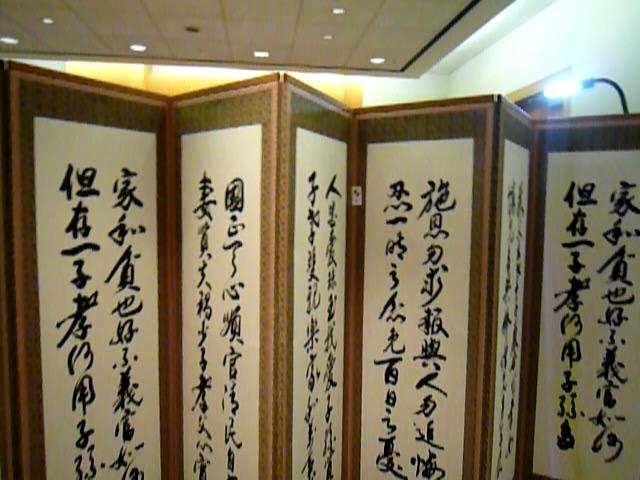 家和貧也好不義富如何
但存一子孝何用子孫多
施恩勿求報與人勿追悔
忍一時之忿免百日之憂
人皆愛珠玉我愛子孫賢
子孝雙親樂家和萬事成
國正天心順官清民自
妻賢夫禍少子孝父心寬
家和貧也好不義富如何
但存一子孝何用子孫